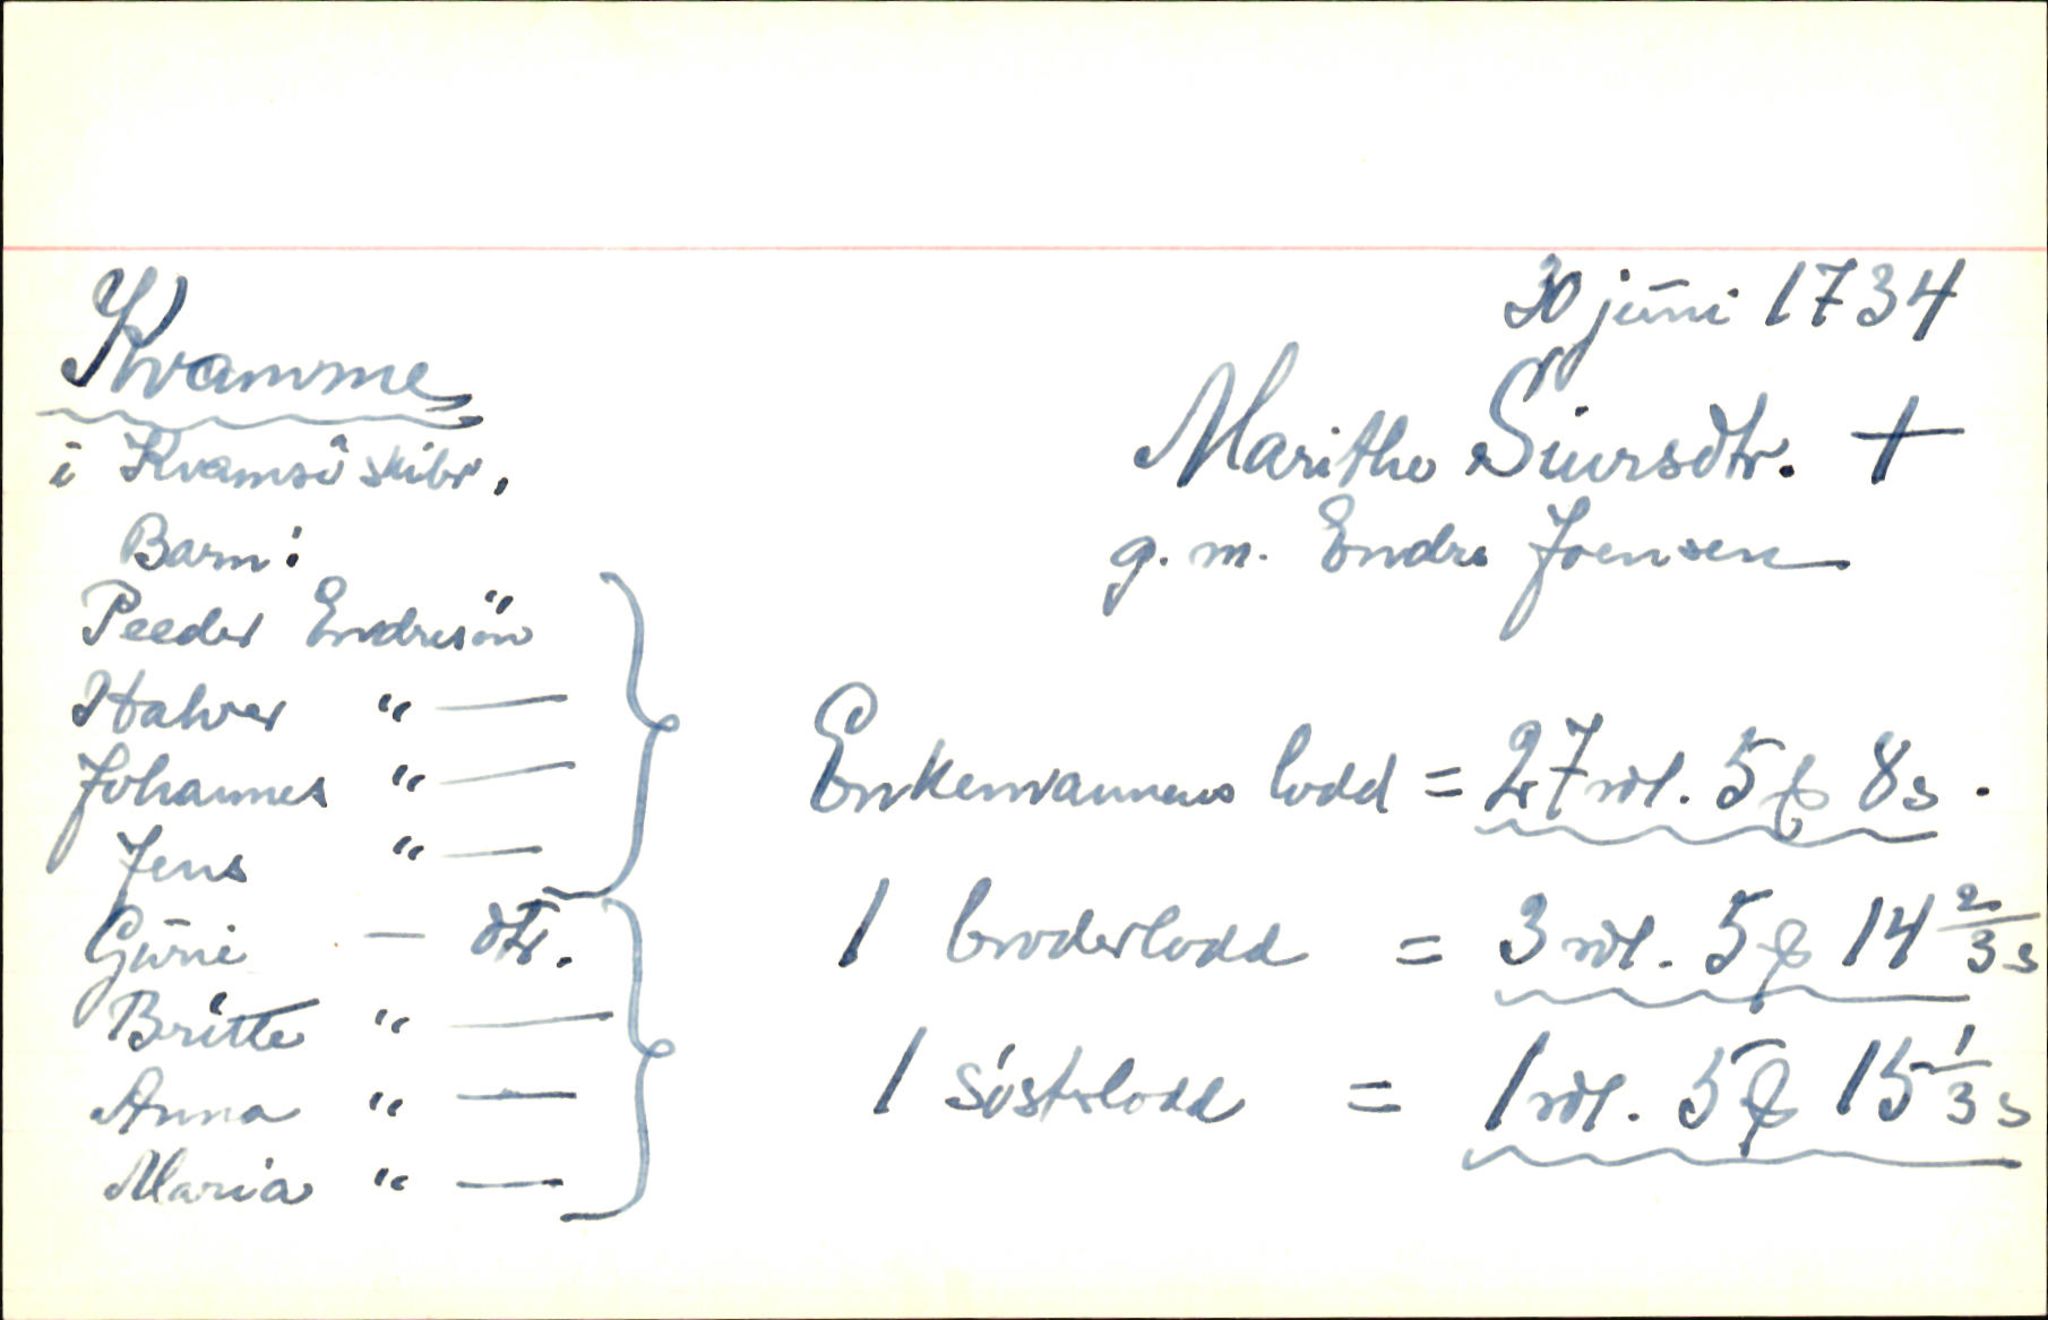 30 juni 1734
Kvamme
i Kvamsö skibr.
Marithe Siursdtr. †
g. m. Endre Joensen
Barn:
Peeder Endresön
Halver " —
Johannes " —
Jens " —
Guri — dtr.
Britte " —
Anna " —
Maria " —
Enkemannens lodd = 27 rdl. 5 ꝑ 8 s.
1 broderlodd = 3 rdl. 5 ꝑ 14 2/3 s
1 södsterlodd = 1 rdl. 5 ꝑ 15 1/3 s